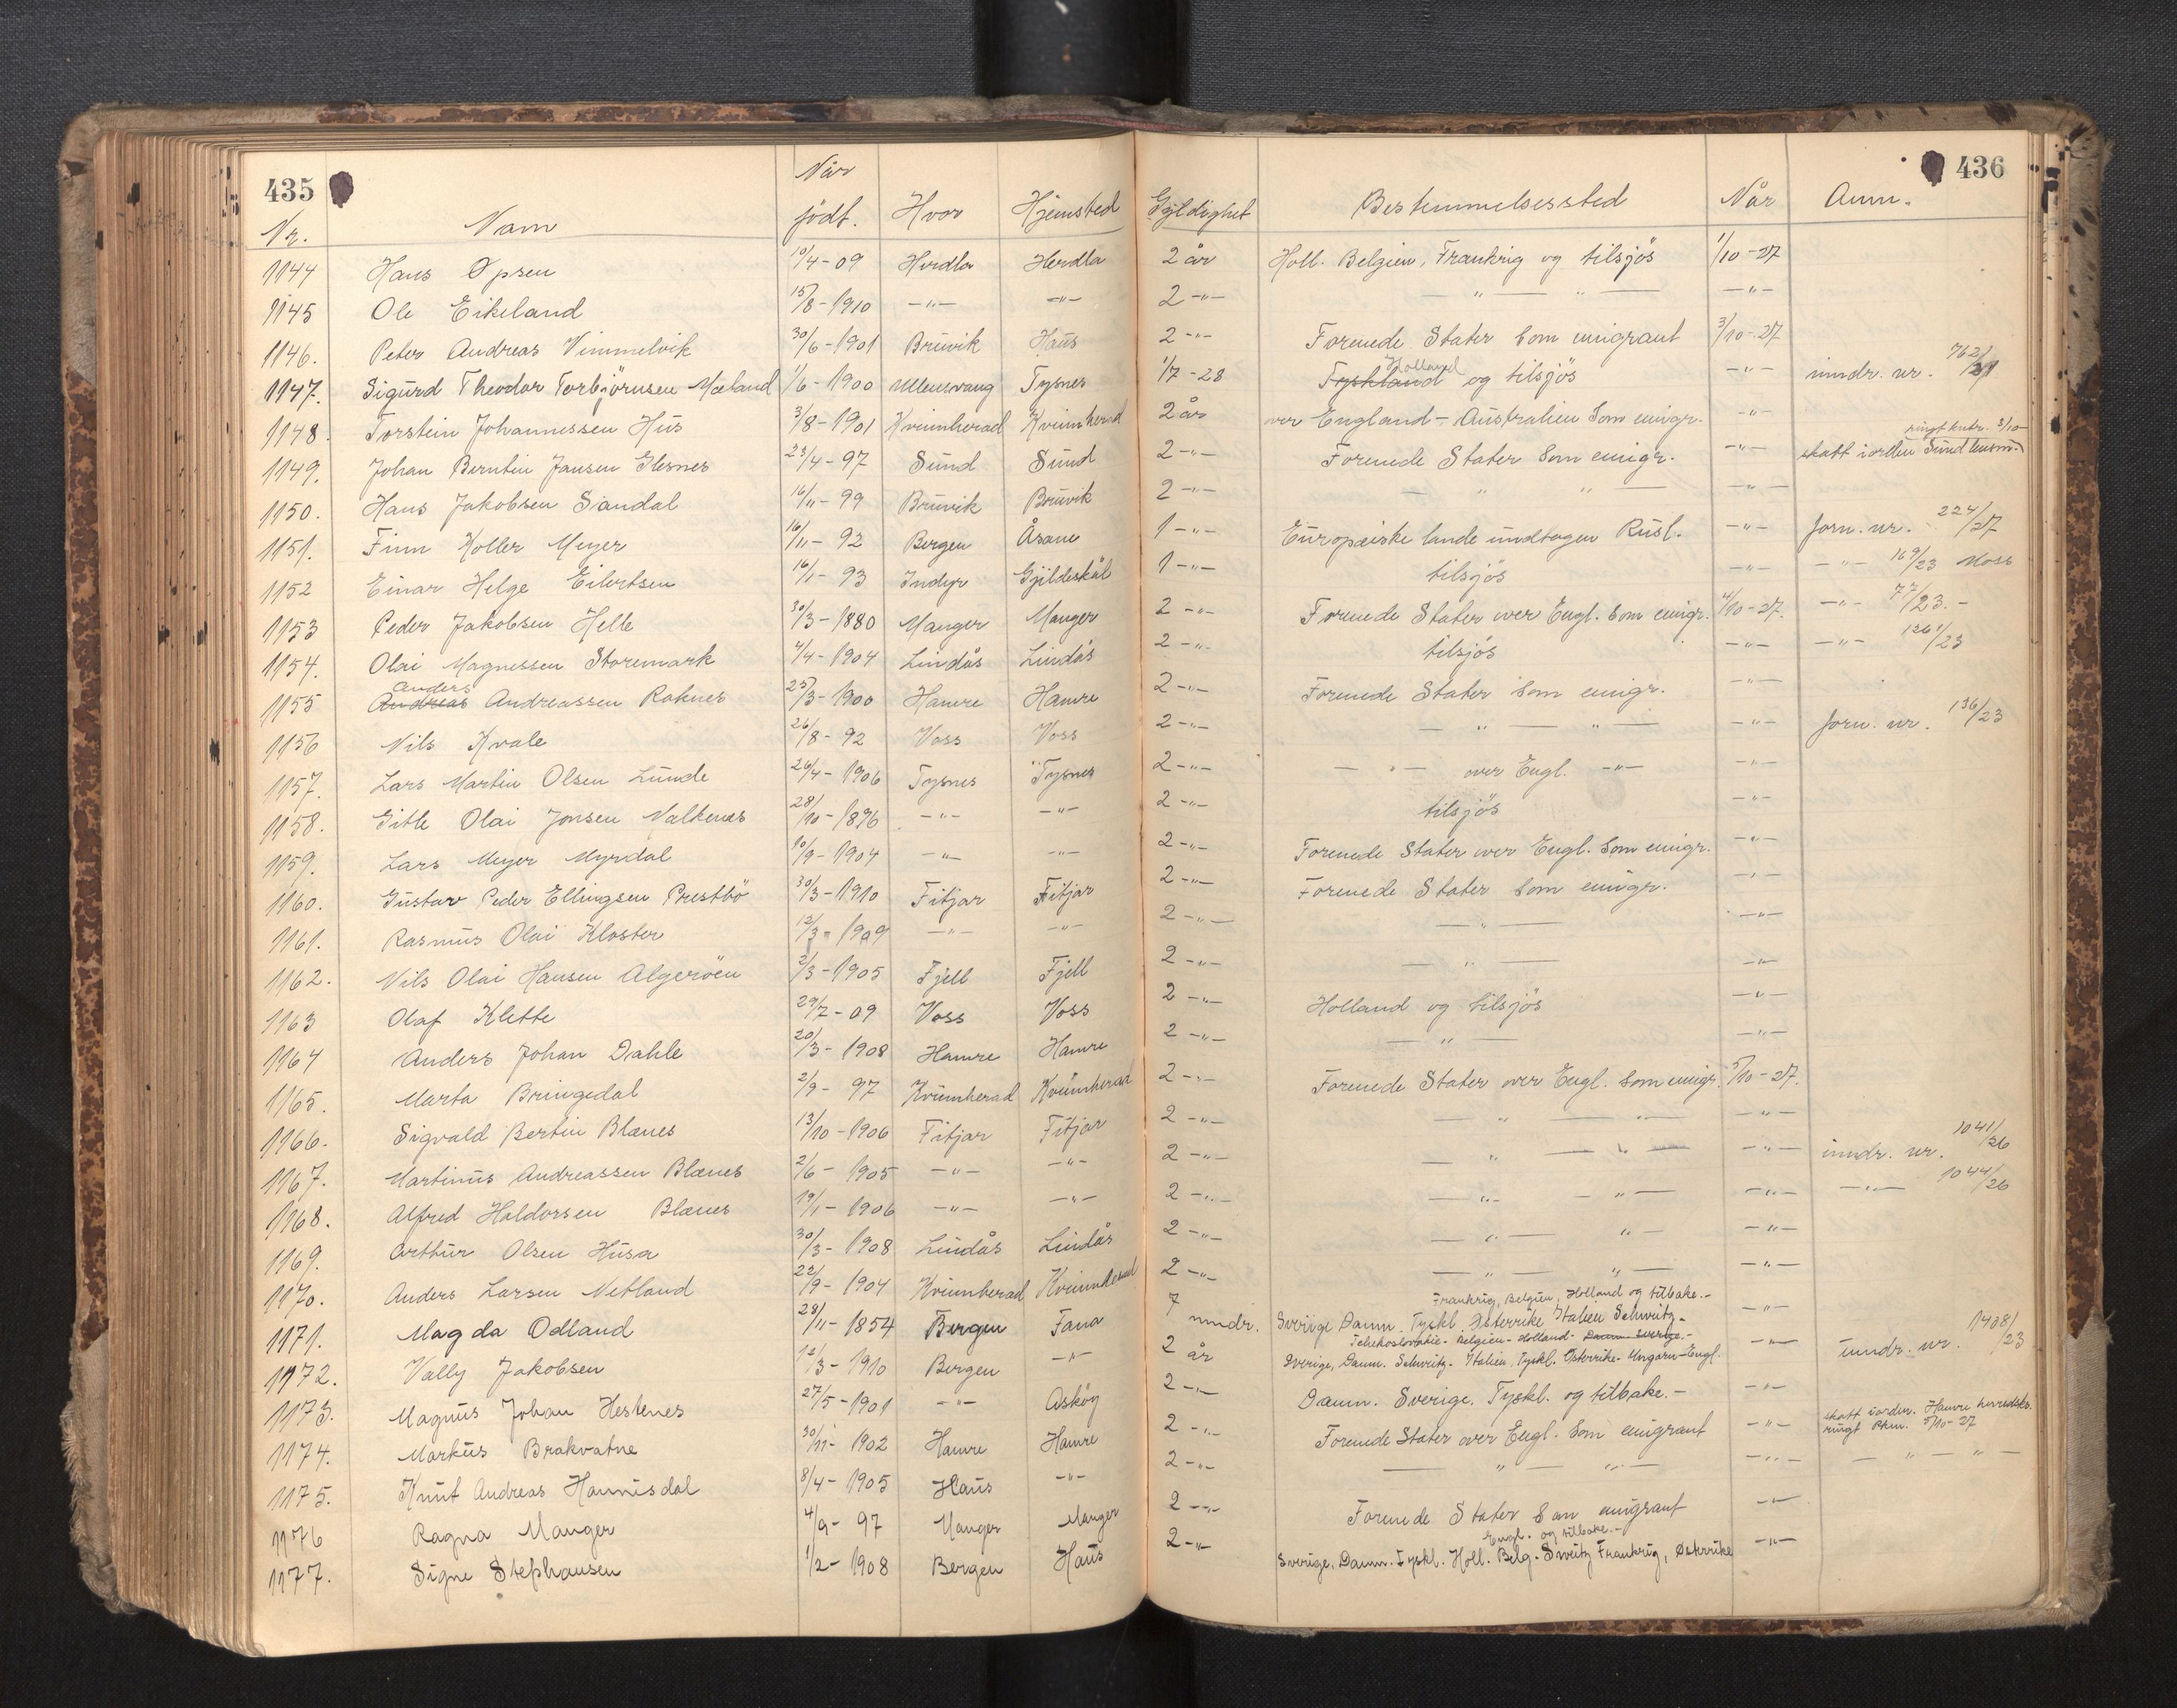 435 436
Nr. Navn Når födt. Hvor Hjemsted Gyldighet Bestemmelsessted Når Anm.
1144 Hans Øpsen 10/4-09 Herdla Herdla 2 år Holl. Belgien, Frankrig og tilsjös 1/10-27
1145 Ole Eikeland 15/8-1910 -"- -"- 2 -"- — " — " — -"-
1146. Peter Andreas Vimmelvik 30/6-1901 Brüvik Haus 2 -"- Forenede Stater som emigrant 3/10-27
1147. Sigurd Theodor Torbjörnsen Mæland 1/6-1900 Ullensvang Tysnes 1/7-28 Tyskland Holland og tilsjös -"- inndr. nr. 762/21
1148. Torstein Johannessen Hus 3/8-1901 Kvinnherad Kvinnherad 2 år over England - Australien som emigr. -"-
1149. Johan Berntin Jansen Glesnes 23/4-97 Sund Sund 2 -"- Forenede Stater som emigr. -"- skatt iorden Sund
1150. Hans Jakobsen Sandal 16/11-99 Brüvik Brüvik 2 -"- — " " — -"-
1151. Finn Koller Meyer 16/11-92 Bergen Åsane 1 -"- Europæiske lande undtagen Rusl. -"- forn. nr. 224/27
1152 Einar Helge Eilertsen 16/1-93 Indyr Gjildeskål 1 -"- tilsjös -"- -"- 169/23 Moss
1153 Peder Jakobsen Helle 30/3-1880 Manger Manger 2 -"- Forenede Stater over Engl. som emigr. 4/10-27. -"- 77/23.-
1154. Olai Magnessen Storemark 4/4-1904 Lindås Lindås 2 -"- tilsjös -"- -"- 1261/23
1155 Andreas Anders Andreassen Roknes 25/3-1900 Hamre Hamre 2 -"- Forenede Stater som emigr. -"-
1156 Nils Kvale 26/8-92 Voss Voss 2 -"- — " — " — -"- forn. nr. 136/23
1157. Lars Martin Olsen Lunde 26/4-1906 Tysnes Tysnes 2 -"- — " — over Engl. -"- -"-
1158. Gitle Olai Jonsen Valkenes 28/10-1896 -"- -"- 2 -"- tilsjös -"-
1159. Lars Meyer Myrdal 10/9-1904 -"- -"- 2 -"- Forenede Stater over Engl. som emigr. -"-
1160. Gustav Peder Ellingsen Prestbö 30/3-1910 Fitjar Fitjar 2 -"- Forenede Stater som emigr. -"-
1161. Rasmus Olai Kloster 12/3-1909 -"- -"- 2 -"- — " — -"-
1162. Nils Olai Hansen Algeröen 2/3-1905 Fjell Fjell 2 -"- — " — -"-
1163 Olaf Klette 29/7-09 Voss Voss 2 -"- Holland og tilsjös -"-
1164 Anders Johan Dahle 20/3-1908 Hamre Hamre 2 -"- — " — -"-
1165. Marta Bringedal 2/9-97 Kvinnherad Kvinnherad 2 -"- Forenede Stater over Engl. som emigr. 5/10-27.
1166. Sigvald Bertin Blænes 13/10-1906 Fitjar Fitjar 2 -"- — " — " — -"-
1167. Martinus Andreassen Blænes 2/6-1905 -"- -"- 2 -"- — " — " — -"- inndr. nr. 1041/26
1168. Alfred Haldorsen Blænes 19/1-1906 -"- -"- 2 -"- — " — " — -"- -"- 1044/26
1169. Arthur Olsen Husa 30/3-1908 Lindås Lindås 2 -"- — " — " — -"-
1170. Anders Larsen Netland 22/9-1904 Kvinnherad Kvinnherad 2 -"- — " — " — -"-
Frankrig, Belgien, Holland og tilbake.-
1171. Magda Odland 28/11-1854 Bergen Fana 7 mndr. Sverige Danm. Tyskl. Østerrike Italien Schweitz- -"-
Tchekoslovakie- Belgien- Holland- Danm. Sverige.-
1172. Vally Jakobsen 12/3-1910 Bergen -"- 2 år Sverige, Danm. Schweitz- Italien, Tyskl. Østerrike- Ungarn-Engl. -"- inndr. nr. 1408/23
1173. Magnus Johan Hestenes 27/5-1901 -"- Asköy 2 -"- Danm. Sverige. Tyskl. og tilbake.- -"-
1174. Markus Brakvatne 30/11-1902 Hamre Hamre 2 -"- Forenede Stater over Engl. som emigrant -"- skatt iorden. Hamre herredsk. ringt 5/10-27
1175. Knut Andreas Hannisdal 8/4-1905 Haus -"- 2 -"- — " — " — -"- — " — " —
1176 Ragna Manger 4/9-97 Manger Manger 2 -"- Forenede Stater som emigrant -"-
Engl. og tilbake.-
1177. Signe Stephansen 1/2-1908 Bergen Haus 2 -"- Sverige, Danm. Tyskl. Holl. Belg. Sveitz Frankrig, Østerrike -"-